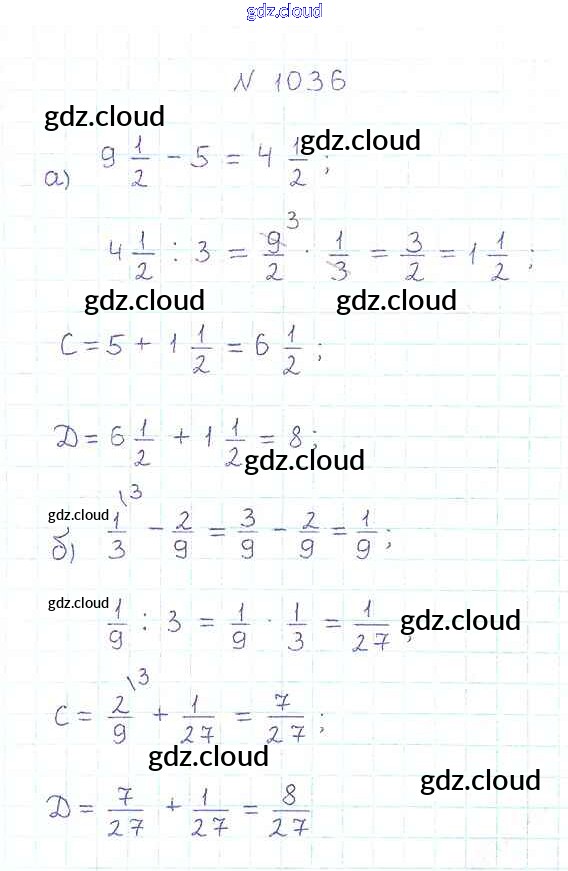 gdz.cloud
N 1036
gdz.cloud
gdz.cloud
а) 9 1/2 - 5 = 4 1/2 ;
4 1/2 : 3 = 9/2 3 · 1/3 = 3/2 = 1 1/2 ;
gdz.cloud gdz.cloud
C = 5 + 1 1/2 = 6 1/2 ;
Д = 6 1/2 + 1 1/2 = 8 ;
gdz.cloud
gdz.cloud
б) 1/3 \3 - 2/9 = 3/9 - 2/9 = 1/9 ;
gdz.cloud
1/9 : 3 = 1/9 · 1/3 = 1/27 ;
gdz.cloud
C = 2/9 \3 + 1/27 = 7/27 ;
gdz.cloud
gdz.cloud
Д = 7/27 + 1/27 = 8/27